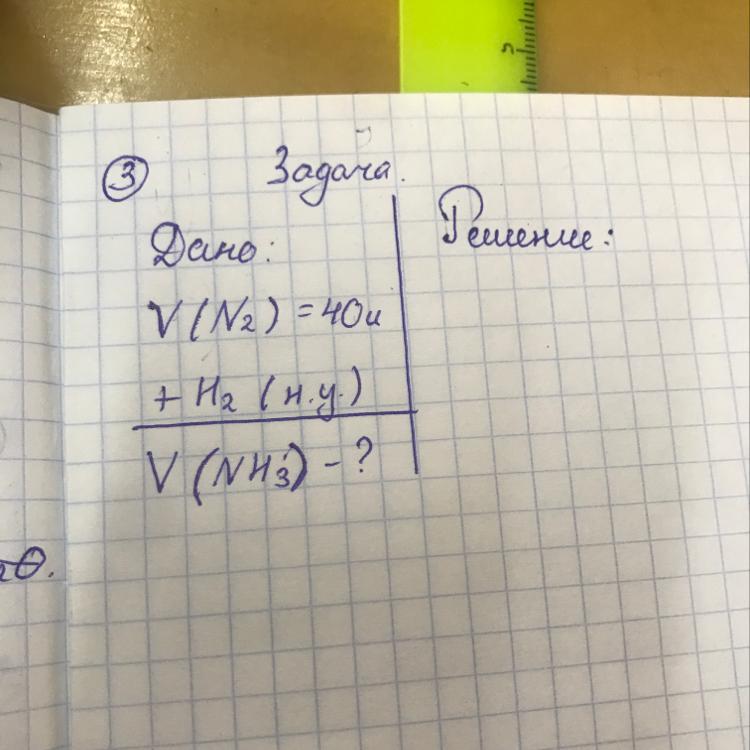 ③ Задача.
Дано:
V (N₂) = 40л
+ H₂ (н.у.)
V (NH₃) - ?
Решение: